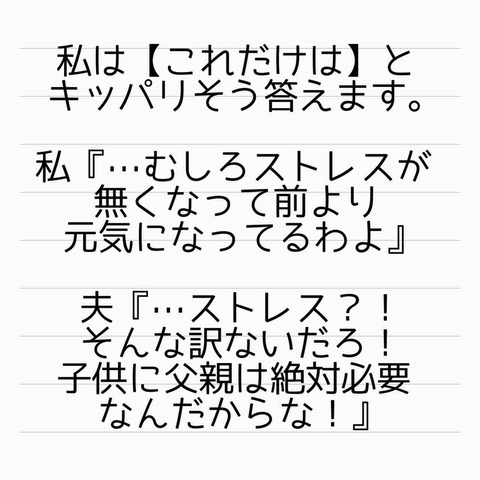 私は【これだけは】と
キッパリそう答えます。
私『…むしろストレスが
無くなって前より
元気になってるわよ』
夫『…ストレス？！
そんな訳ないだろ！
子供に父親は絶対必要
なんだからな！』